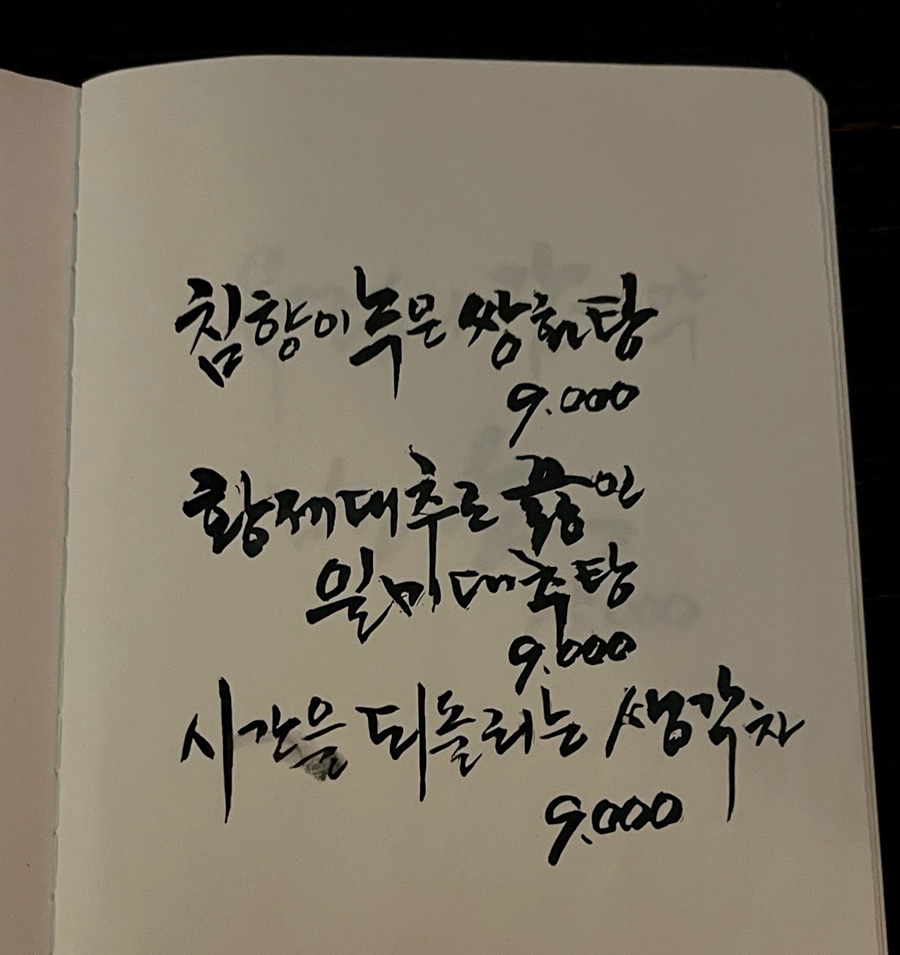 침향이 녹은 쌍화탕
9.000
황제대추로 끓인
일미대추탕
9.000
시간을 되돌리는 생각차
9.000